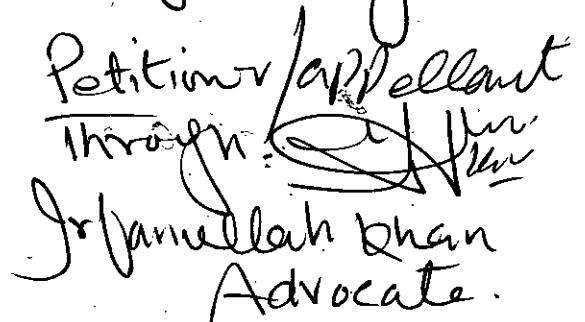 Petitioner/appellant
Through:
Irfanullah Khan
Advocate.